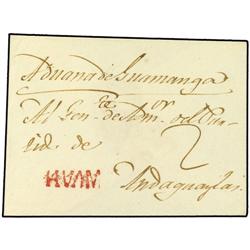 Aduana de Guamanga
Al Gen.
de Adm.or del Par-
tido de
2
HUAM
Andaguaylas